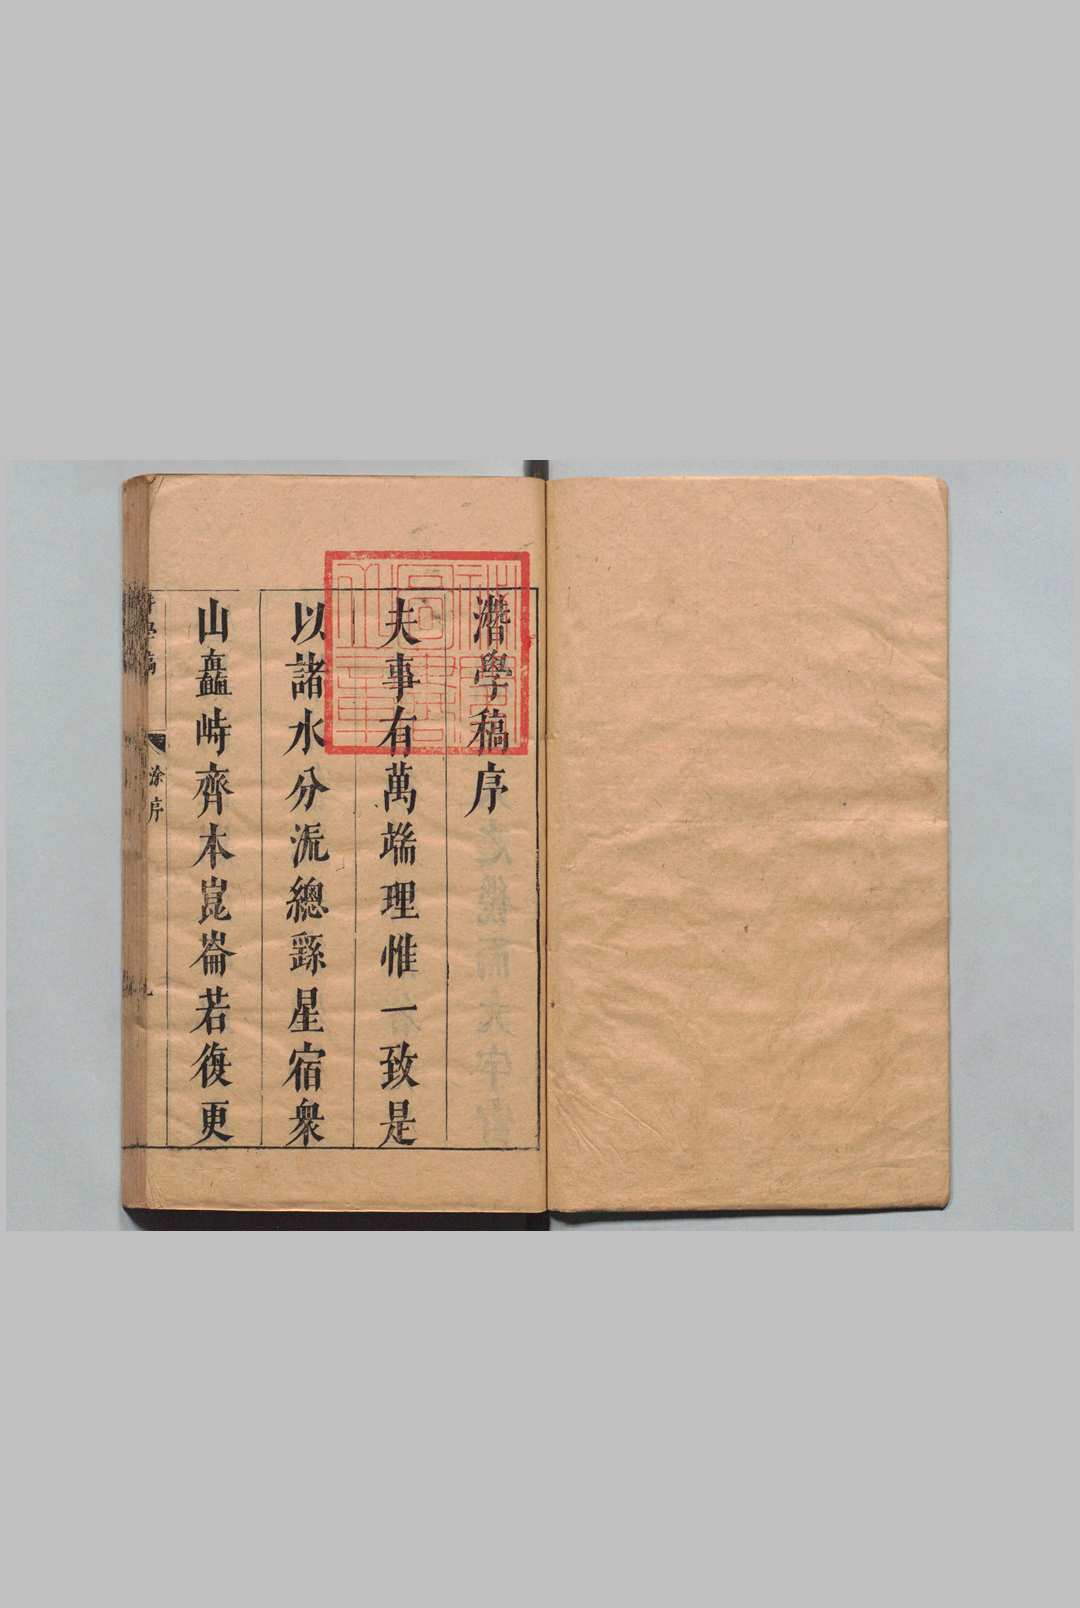 潛學稿序
夫事有萬端理惟一致是
以諸水分流總繇星宿衆
山矗峙齊本崑崙若復更
學稿
涂序